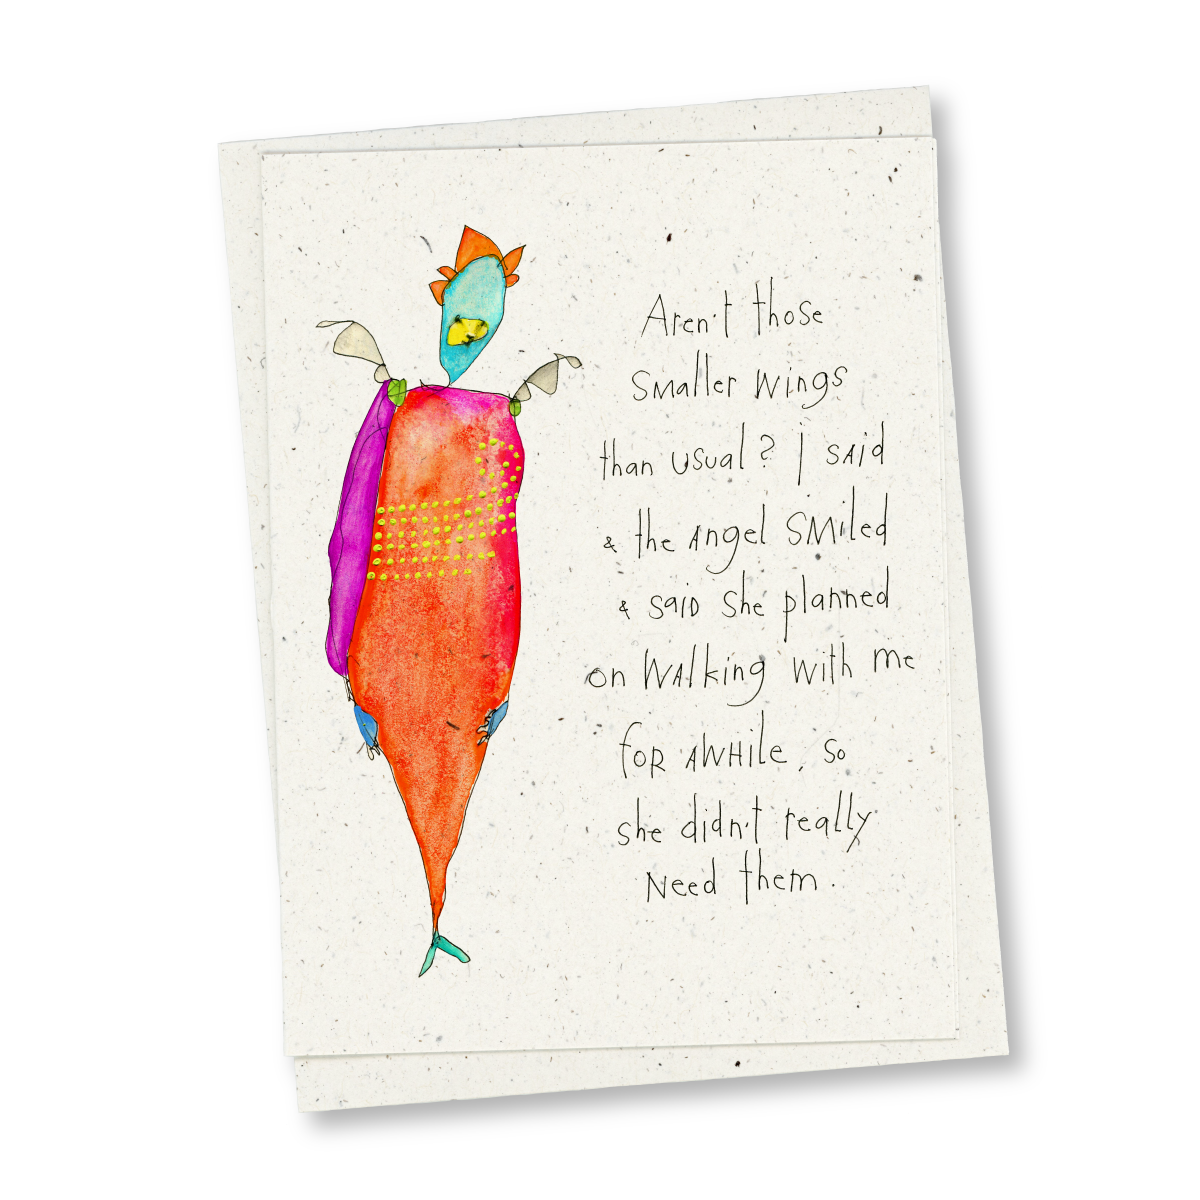 Aren't those
smaller wings
than usual? i said
& the angel smiled
& said she planned
on walking with me
for awhile, so
she didn't really
need them.